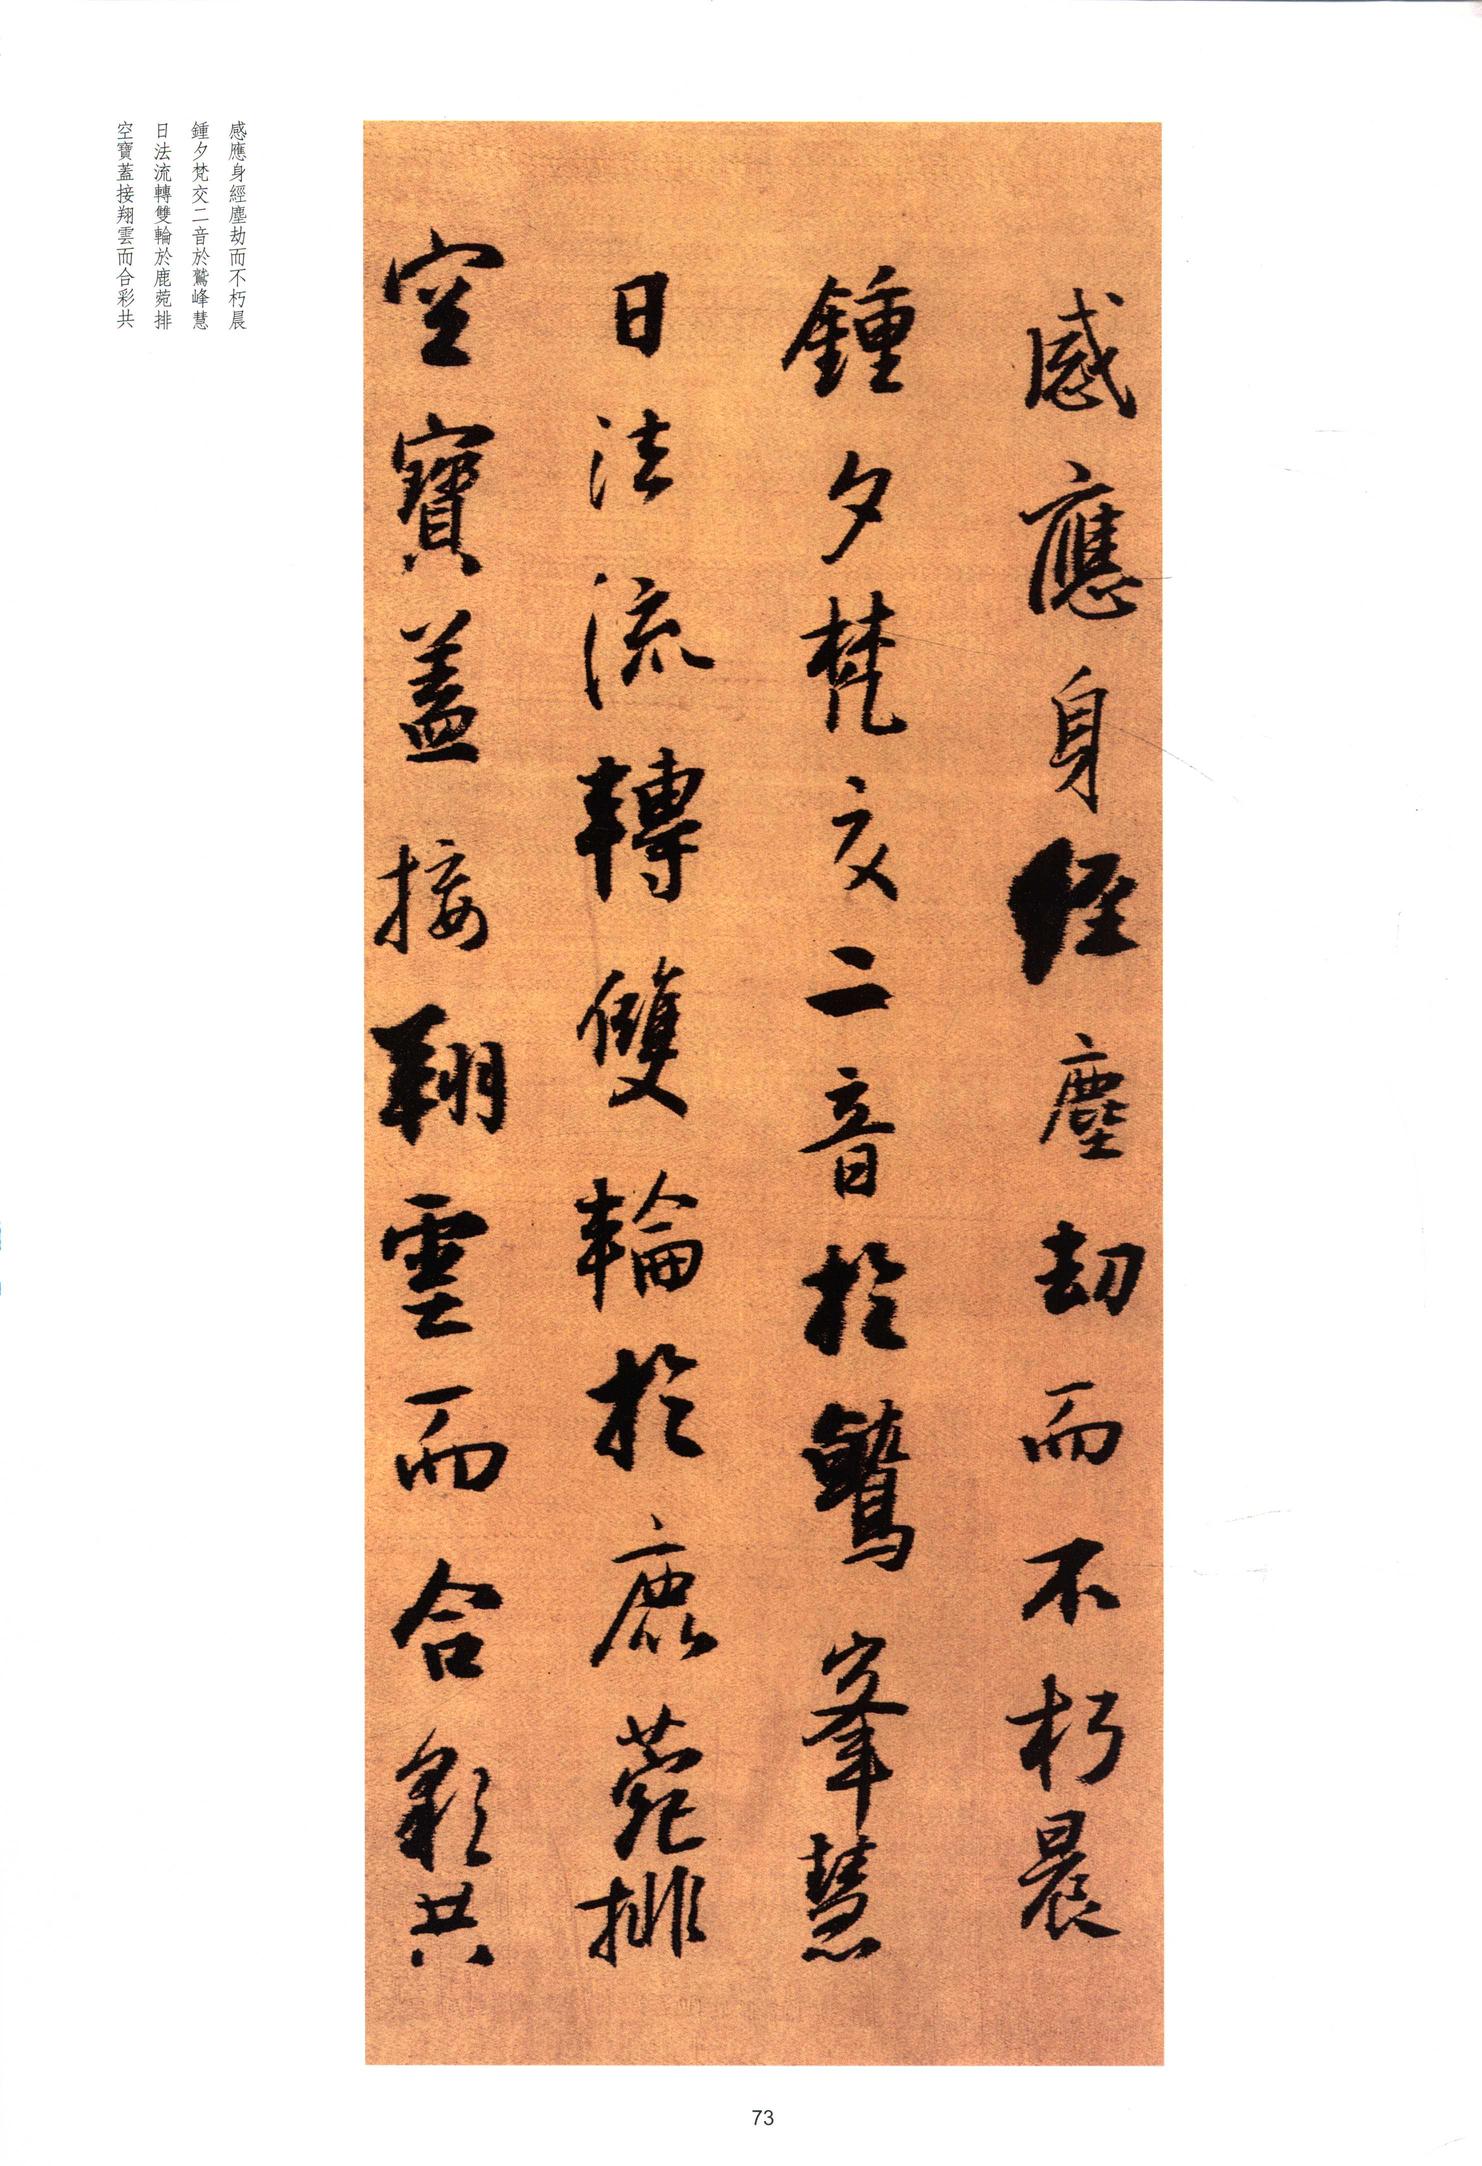 感應身經塵劫而不朽晨
鍾夕梵交二音於鷲峯慧
日法流轉雙輪於鹿菀排
空寶蓋接翔雲而合彩共
感應身經塵劫而不朽晨
鍾夕梵交二音於鷲峰慧
日法流轉雙輪於鹿菀排
空寶蓋接翔雲而合彩共
73